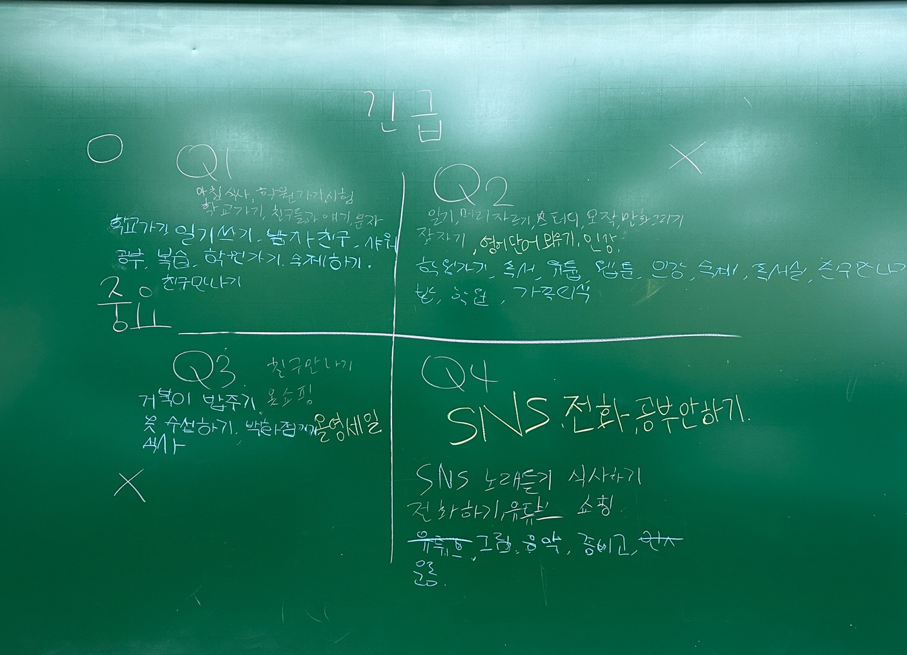 긴급
O
X
Q1
아침식사, 학원가기, 시험
학교가기, 친구들과 얘기, 문자
학교가기 일기쓰기, 남자친구, 샤워
공부, 복습, 학원가기, 숙제하기.
친구만나기
중요
Q2
일기, 머리 자르기, 스터디, 모작, 만화그리기
잠자기, 영어단어 외우기, 인강,
학원가기, 독서, 유튭, 웹툰, 인강, 숙제, 독서실, 친구만나기
학원, 가족외식
Q3 친구만나기
거북이 밥주기, 옷쇼핑
옷 수선하기, 백화점가기 올영세일
식사
X
Q4
SNS, 전화, 공부안하기.
SNS 노래듣기 식사하기
전화하기, 유튜브 쇼핑
유튜브, 그림, 음악, 좀비고,